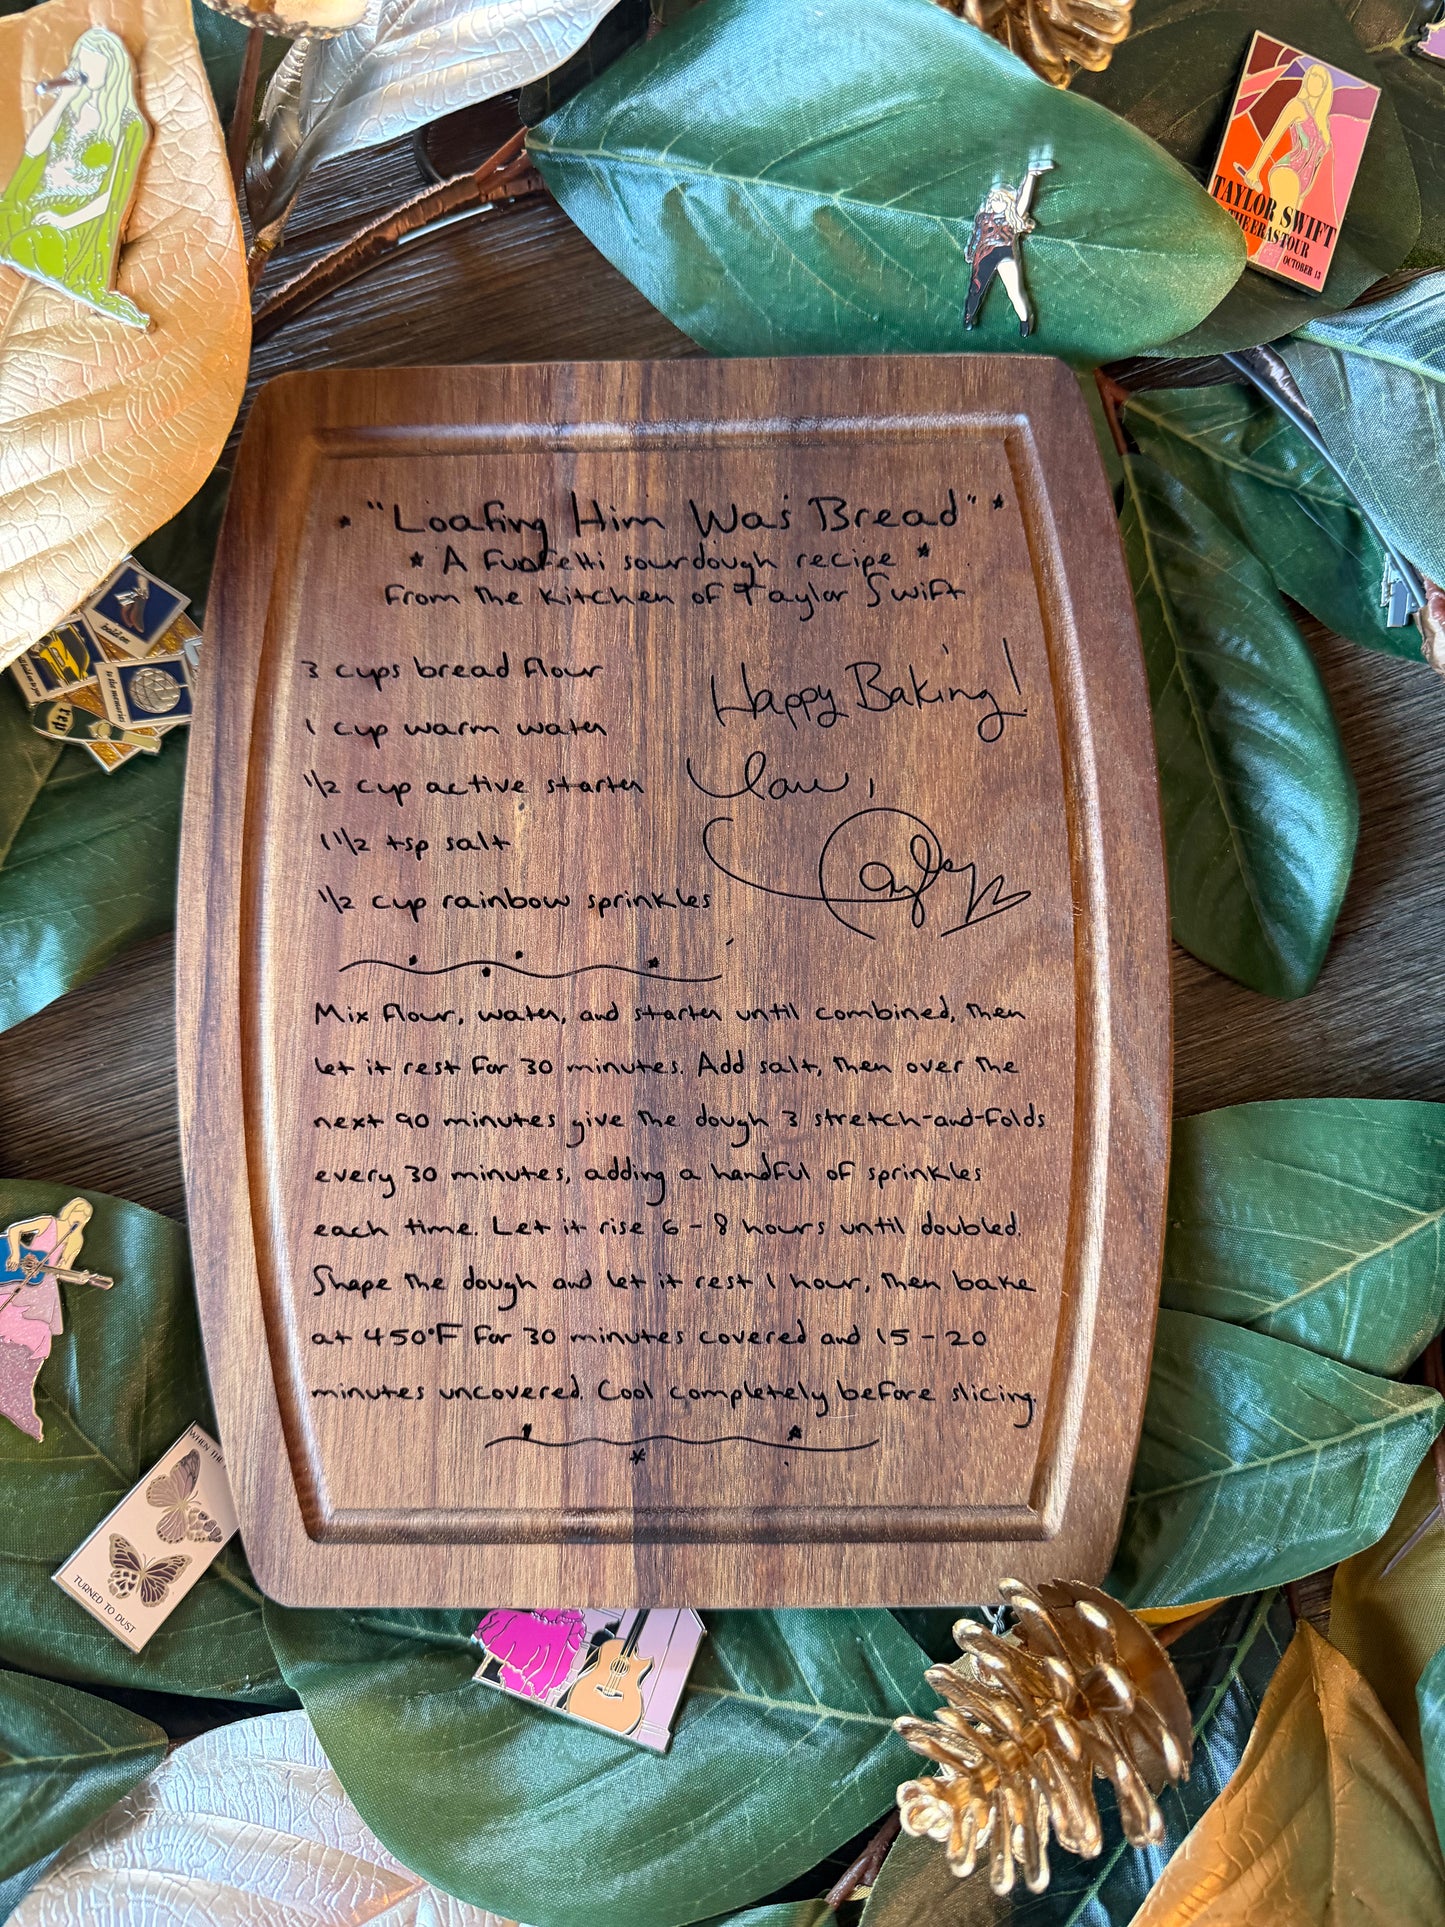 "Loafing Him Was Bread"
* A Funfetti sourdough recipe *
From the Kitchen of Taylor Swift
3 cups bread flour
1 cup warm water
1/2 cup active starter
1 1/2 tsp salt
1/2 cup rainbow sprinkles
Happy Baking!
Love,
Taylor
Mix flour, water, and starter until combined, then
let it rest for 30 minutes. Add salt, then over the
next 90 minutes give the dough 3 stretch-and-folds
every 30 minutes, adding a handful of sprinkles
each time. Let it rise 6 - 8 hours until doubled.
Shape the dough and let it rest 1 hour, then bake
at 450°F for 30 minutes covered and 15 - 20
minutes uncovered. Cool completely before slicing.
TAYLOR SWIFT
THE ERAS TOUR
OCTOBER 13
hold on
to the memories
rep
WHEN THE
TURNED TO DUST